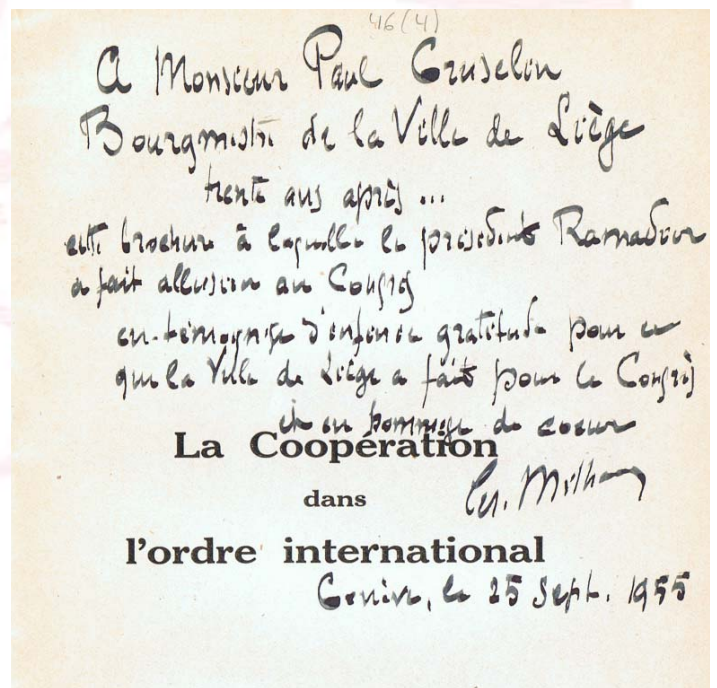 46(4)
A Monsieur Paul Gruselin
Bourgmestre de la Ville de Liège
trente ans après ...
cette brochure à laquelle le président Ramadier
a fait allusion au Congrès
en témoignage d'infinie gratitude pour ce
que la Ville de Liège a fait pour le Congrès
et en hommage de coeur
La Coopération
dans
Ed. Milhaud
l'ordre international
Genève, le 25 Sept. 1955